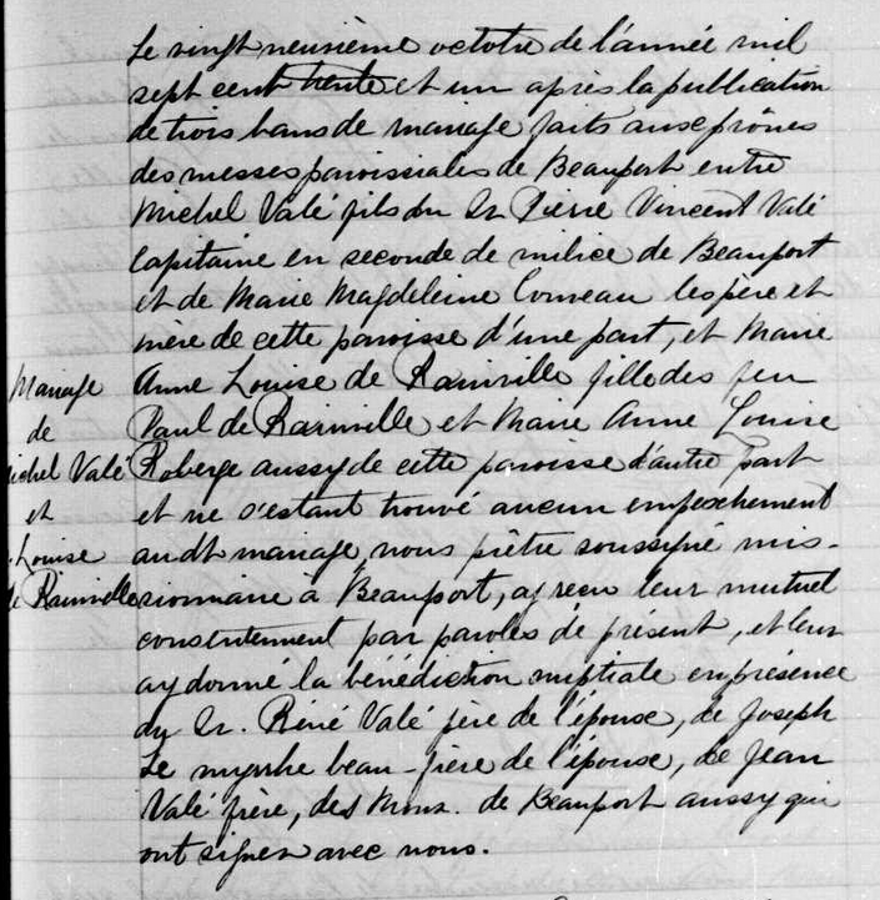 Le vingt neusième octobre de l'année mil
sept cent trente et un après la publication
de trois bans de mariage faits aux prônes
des messes paroissiales de Beauport entre
Michel Valé fils du Sr Pierre Vincent Valé
Capitaine en seconde de milice de Beauport
et de Marie Magdeleine Comeau les père et
mère de cette paroisse d'une part, et Marie
Mariage
de
Michel Valé
et
Louise
de Rainville
Anne Louise de Rainville fille des feu
Paul de Rainville et Marie Anne Louise
Roberge aussy de cette paroisse d'autre part
et ne s'estant trouvé aucun empeschement
audt mariage, nous prêtre soussigné mis-
sionnaire à Beauport, ay reçu leur mutuel
consentement par paroles de présent, et leur
ay donné la bénédiction nuptiale en présence
du Sr. Réné Valé père de l'épouse, de Joseph
Le myrrhe beau-frère de l'épouse, de Jean
Valé frère, des de Beauport aussy qui
ont signer avec nous.